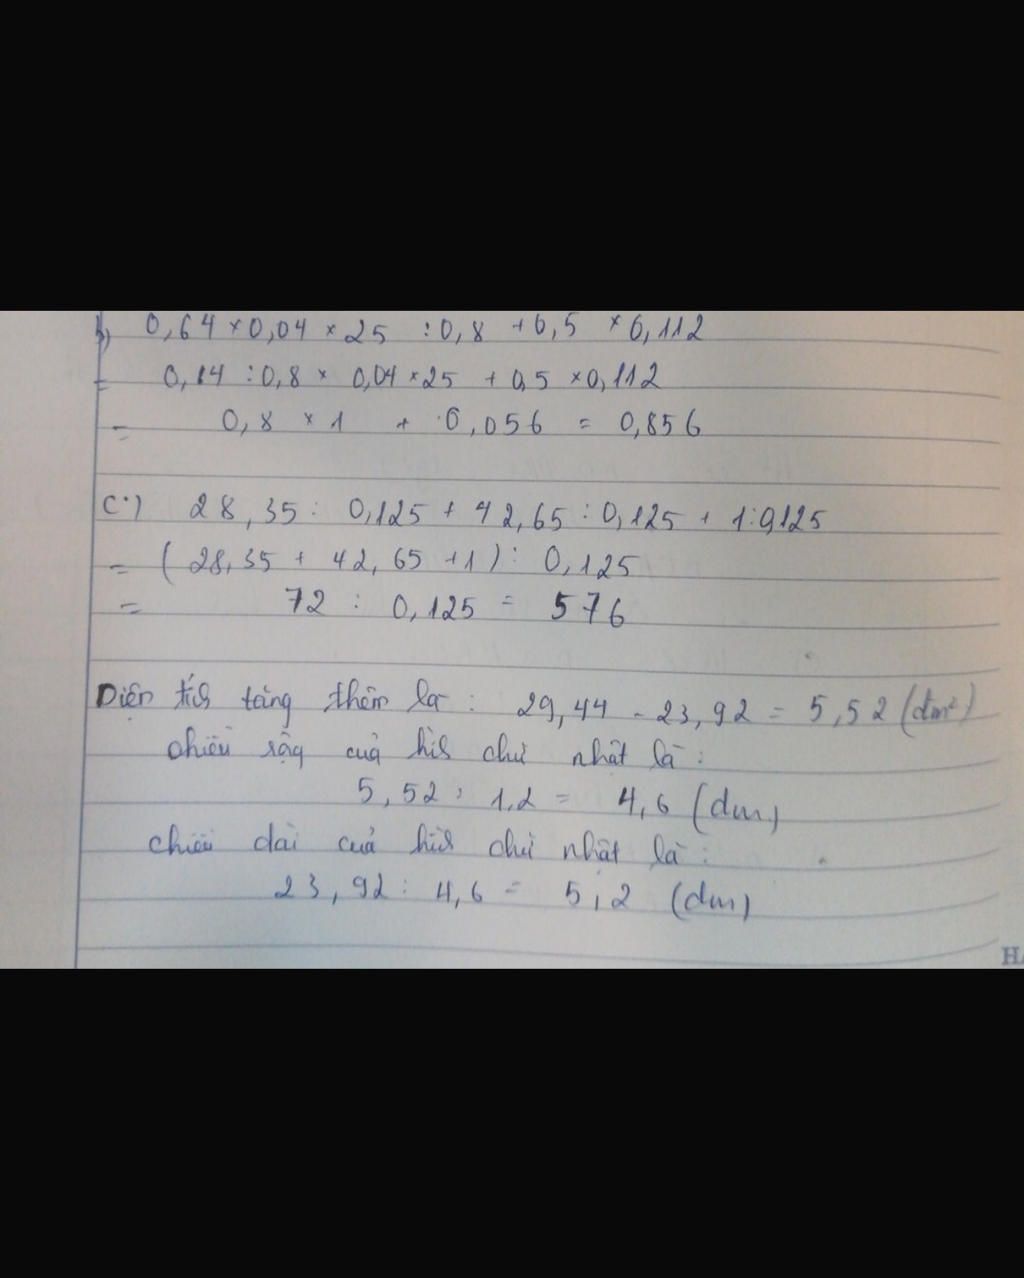 b) 0,64 × 0,04 × 25 : 0,8 + 0,5 × 0,112
= 0,64 : 0,8 × 0,04 × 25 + 0,5 × 0,112
= 0,8 × 1 + 0,056 = 0,856
c.) 28,35 : 0,125 + 42,65 : 0,125 + 1:0,125
= (28,35 + 42,65 + 1) : 0,125
= 72 : 0,125 = 576
Diện tích tăng thêm là : 29,44 - 23,92 = 5,52 (dm²)
chiều rộng của hình chữ nhật là :
5,52 : 1,2 = 4,6 (dm)
chiều dài của hình chữ nhật là :
23,92 : 4,6 = 5,2 (dm)